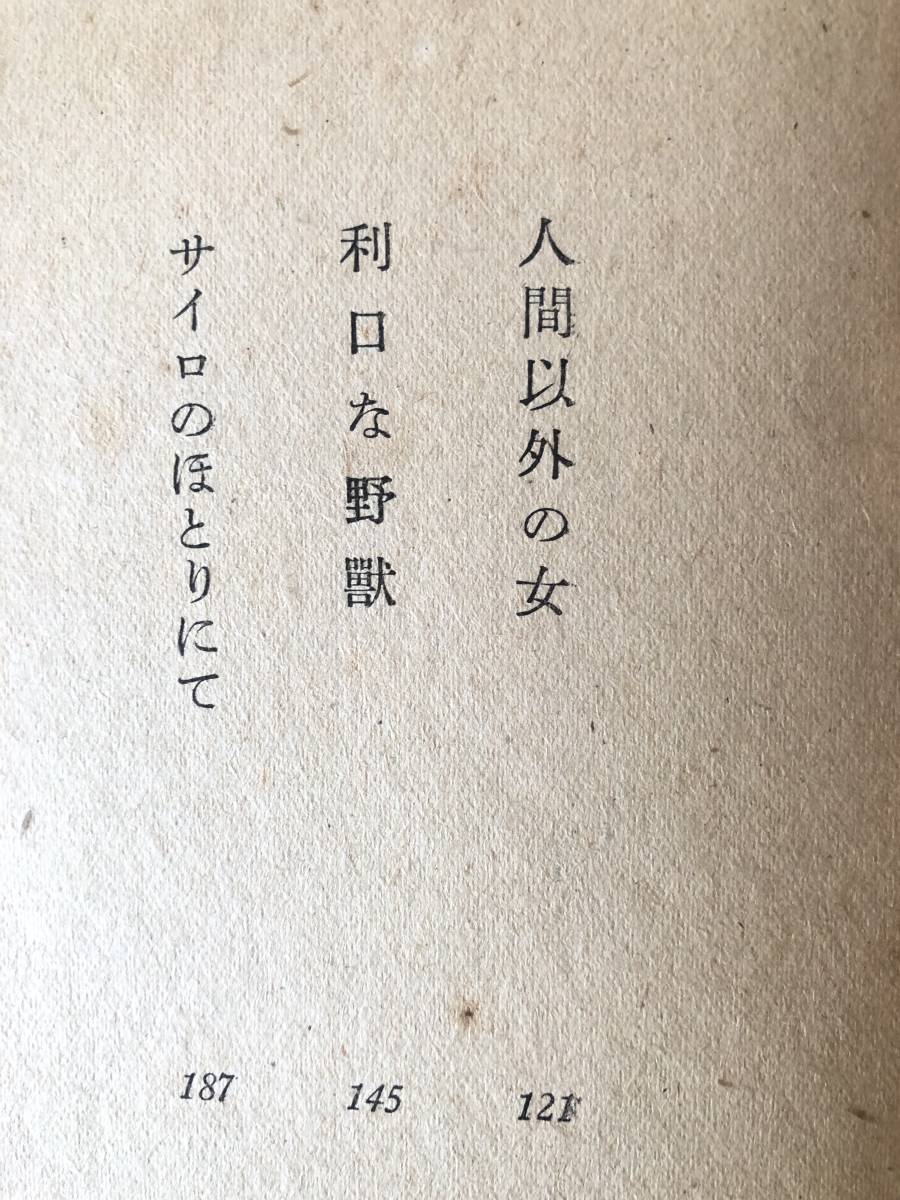 人間以外の女 121
利口な野獸 145
サイロのほとりにて 187